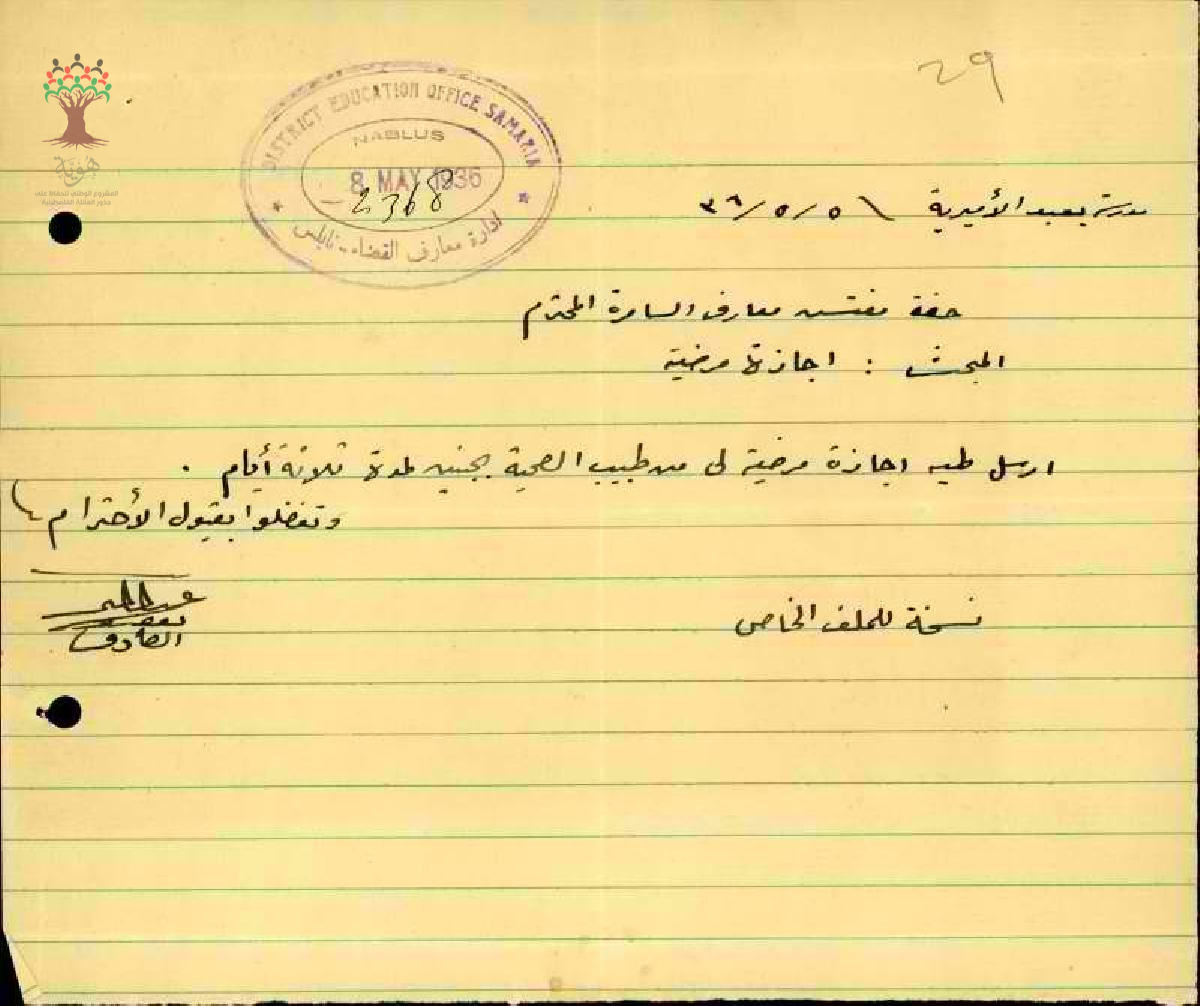 29
هوية
المشروع الوطني للحفاظ على
جذور العائلة الفلسطينية
DISTRICT EDUCATION OFFICE SAMARIA
NABLUS
8 MAY 1936
2368
ادارة معارف القضاء - نابلس
مدرسة يعبد الأميرية ٥/٥/٣٦
حضرة مفتش معارف السامرة المحترم
المبحث : اجازة مرضية
ارسل طيه اجازة مرضية لي من طبيب الصحية بجنين لمدة ثلاثة أيام .
وتفضلوا بقبول الأحترام
نسخة للملف الخاص
الصادق